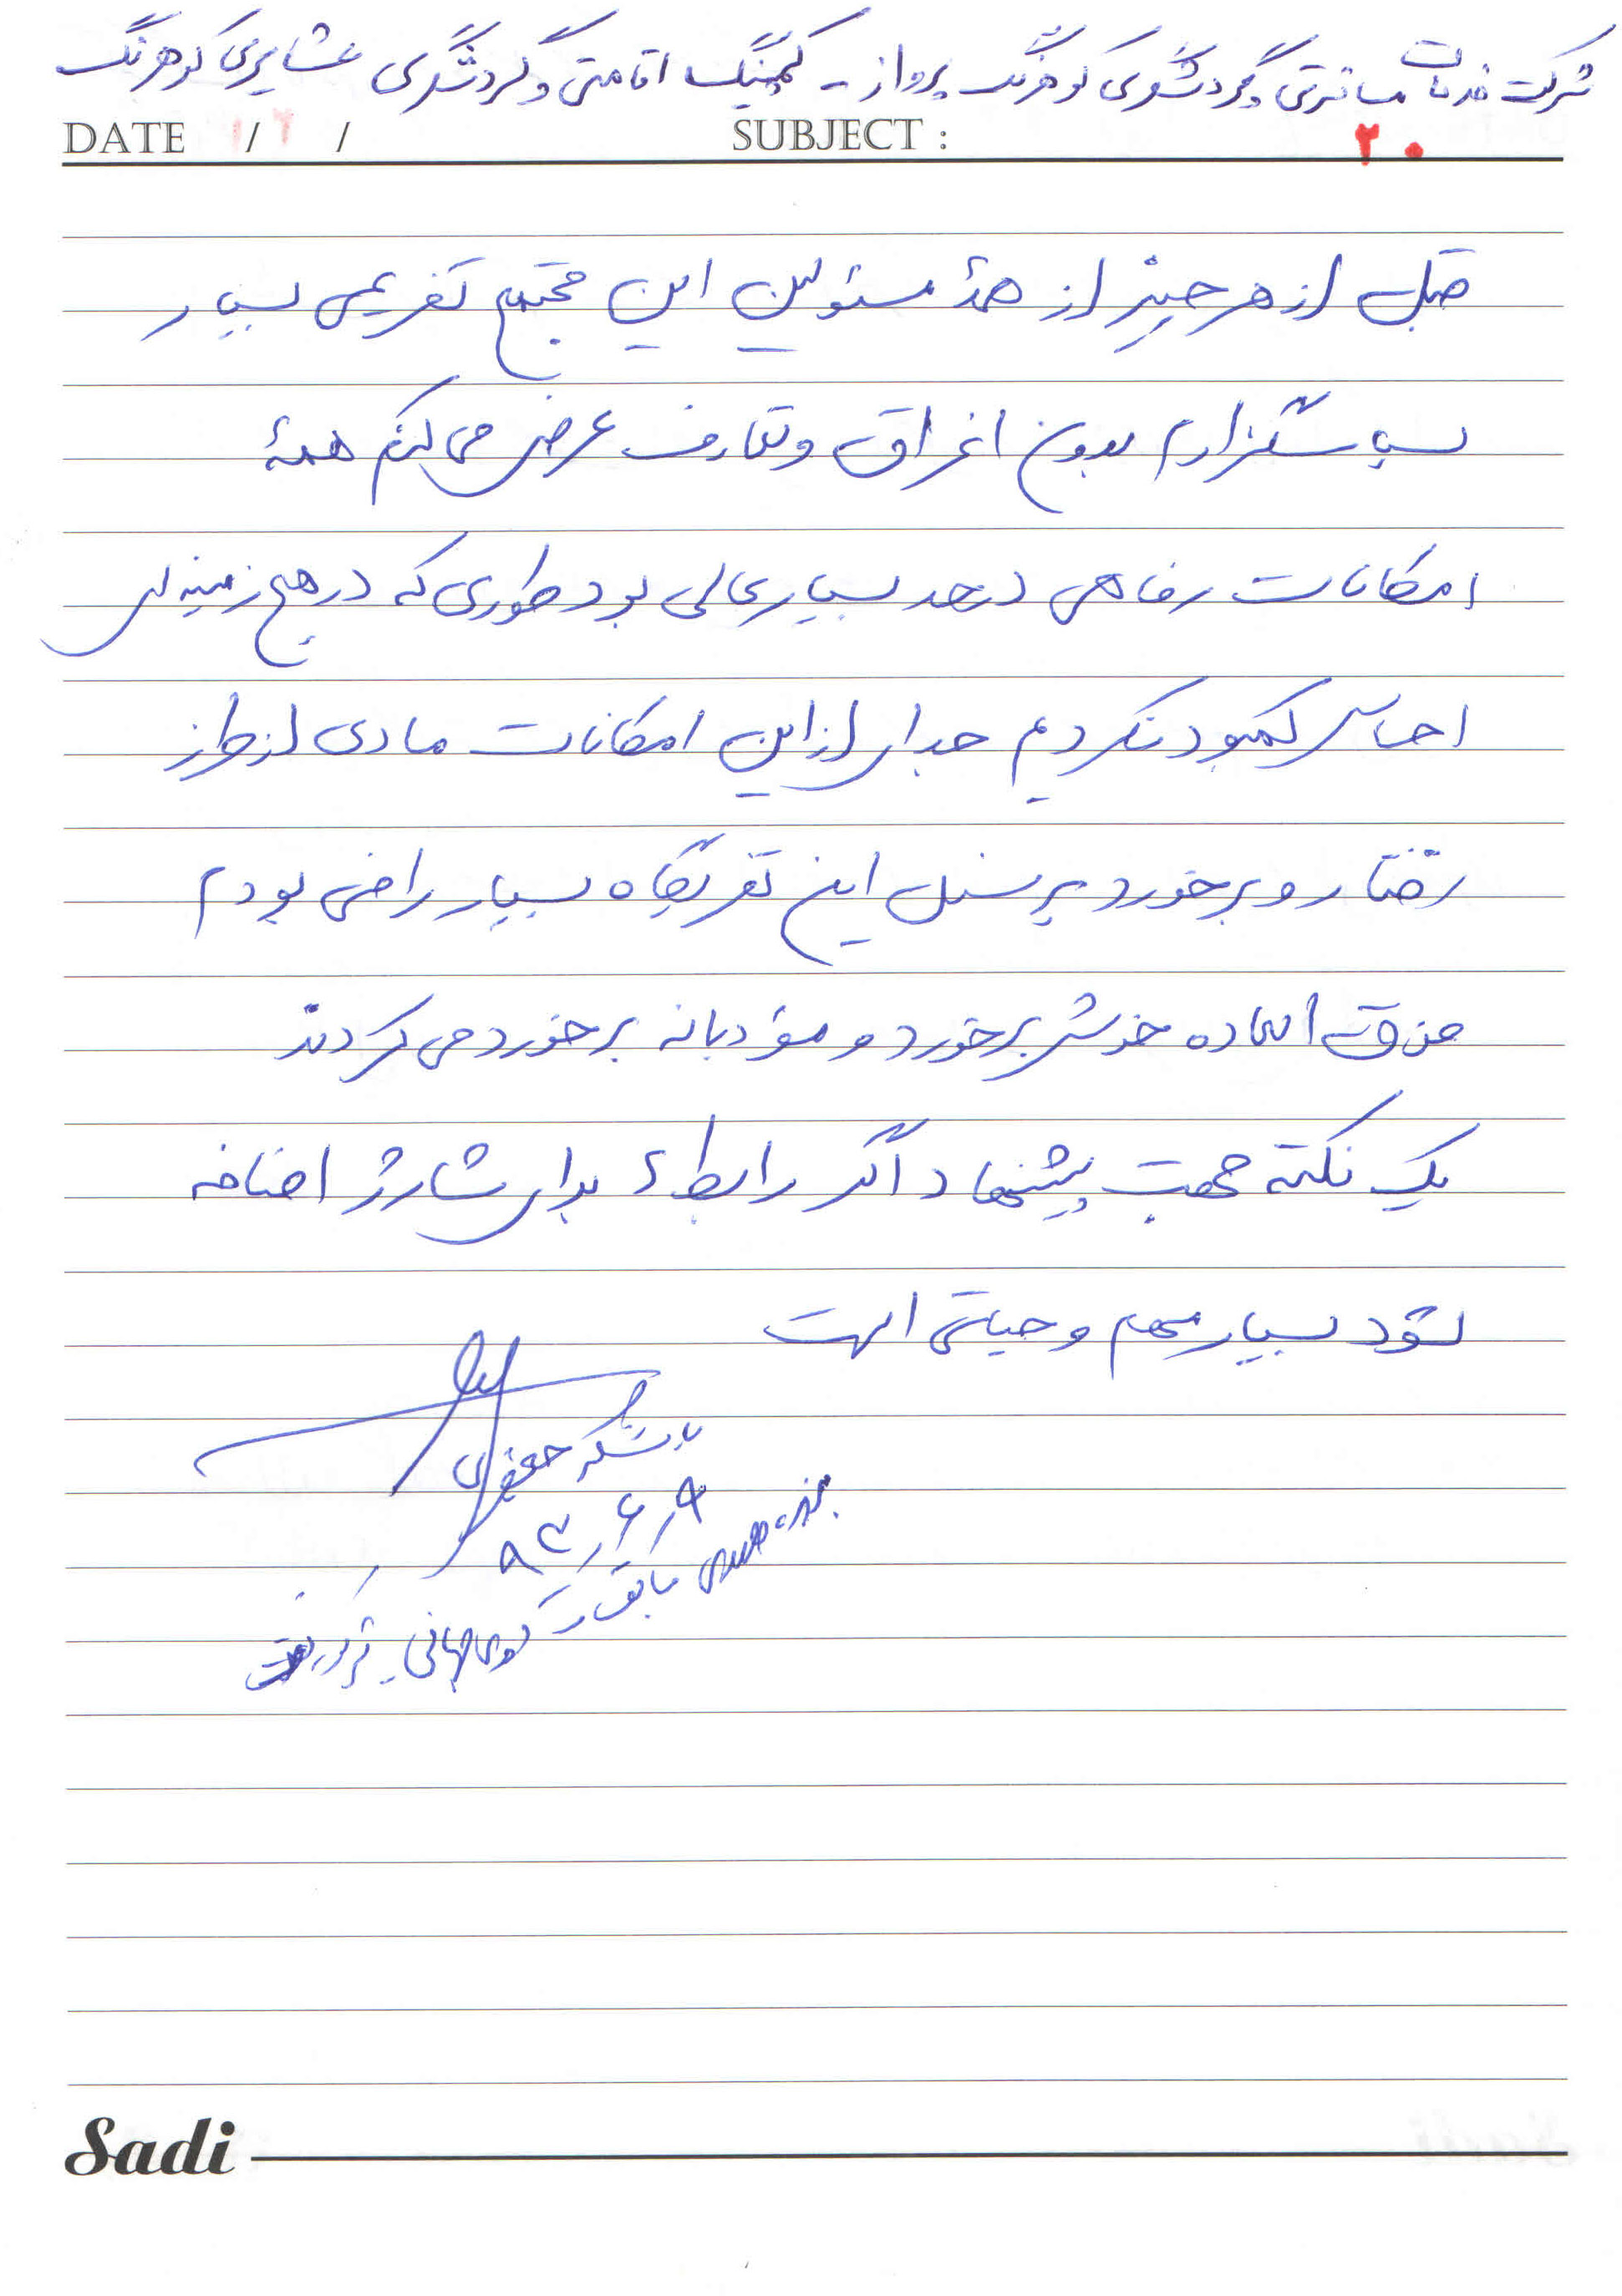 شرکت خدمات مسافرتی و گردشگری کوهرنگ پرواز - کمپینگ اقامتی و گردشگری عشایری کوهرنگ
DATE / / SUBJECT :
۲۰
قبل از هر چیز از همهٔ مسئولین این مجتمع تفریحی بسیار
سپاسگزارم بدون اغراق و تعارف عرض می کنم همهٔ
امکانات رفاهی در حد بسیار عالی بود طوری که در هیچ زمینه ای
احساس کمبود نکردیم جدای از این امکانات مادی از طرز
رفتار و برخورد پرسنل این تفریگاه بسیار راضی بودم
فوق العاده خوش برخورد و مؤدبانه برخورد می کردند
یک نکته جهت پیشنهاد اگر رابطهٔ برای شارژ اضافه
شود بسیار مهم و حیاتی است
با تشکر جعفری
۹۳/۶/۹
مسابقات جهانی
Sadi